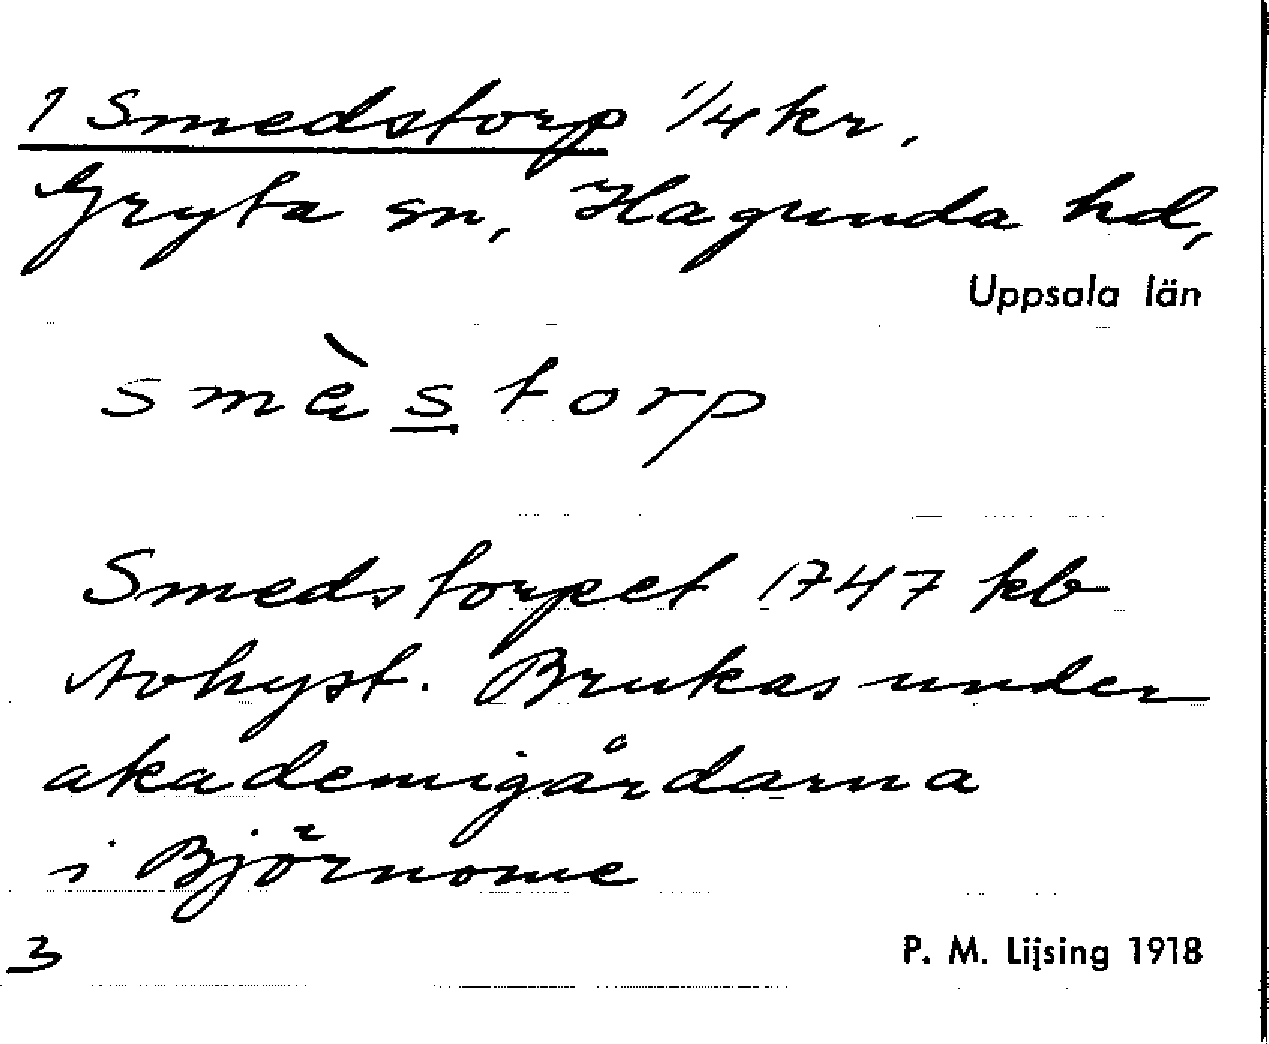 1 Smedstorp 1/4 kr,
Gryta sn, Hagunda hd,
Uppsala län
smὲstorp
Smedstorpet 1747 kb
Avhyst. Brukas under
akademigårdarna
i Björnome
3
P. M. Lijsing 1918